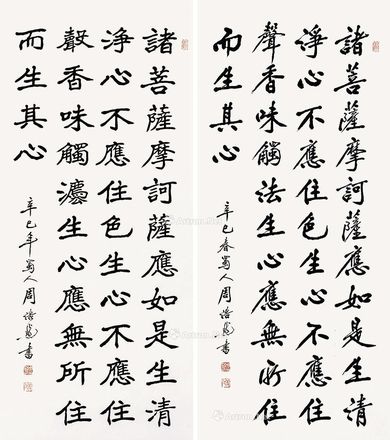 諸菩薩摩訶薩應如是生清
淨心不應住色生心不應住
聲香味觸法生心應無所住
而生其心
辛巳春蜀人周浩然書
諸菩薩摩訶薩應如是生清
淨心不應住色生心不應住
聲香味觸灋生心應無所住
而生其心
辛巳年蜀人周浩然書